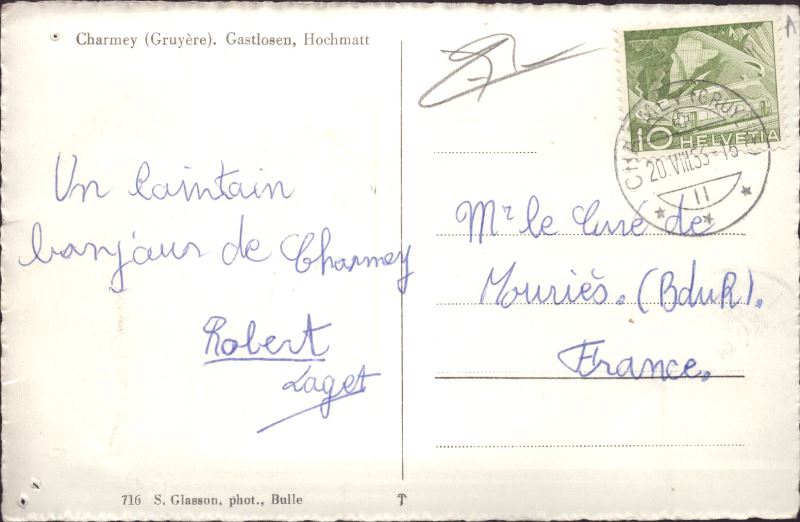 Charmey (Gruyère). Gastlosen, Hochmatt
Un lointain
bonjour de Charmey
Robert
Laget
716 S. Glasson, phot., Bulle
10 HELVETIA
CHARMEY (GRUY
20.VIII.53-15
II
Mr le Curé de
Mouriès. (BduR).
France.